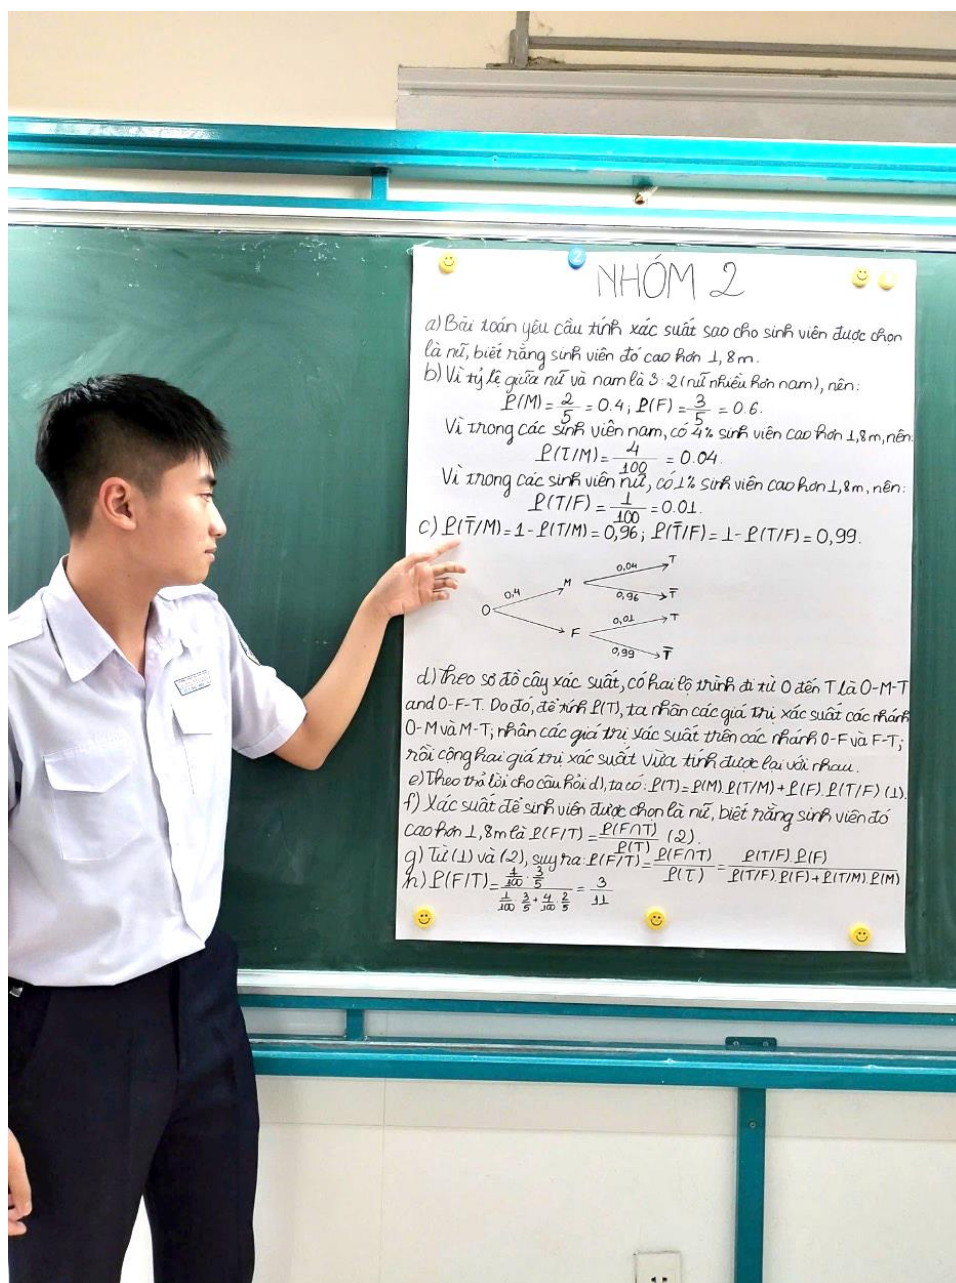 2
NHÓM 2
a) Bài toán yêu cầu tính xác suất sao cho sinh viên được chọn
là nữ, biết rằng sinh viên đó cao hơn 1,8m.
b) Vì tỷ lệ giữa nữ và nam là 3:2 (nữ nhiều hơn nam), nên:
P(M) = 2/5 = 0.4; P(F) = 3/5 = 0.6.
Vì trong các sinh viên nam, có 4% sinh viên cao hơn 1,8m, nên:
P(T/M) = 4/100 = 0.04.
Vì trong các sinh viên nữ, có 1% sinh viên cao hơn 1,8m, nên:
P(T/F) = 1/100 = 0.01.
c) P(T̅/M) = 1 - P(T/M) = 0,96; P(T̅/F) = 1 - P(T/F) = 0,99.
0,04 T
0,4 M
0,96 T̅
O
0,01 T
F
0,99 T̅
d) Theo sơ đồ cây xác suất, có hai lộ trình đi từ O đến T là O-M-T
and O-F-T. Do đó, để tính P(T), ta nhân các giá trị xác suất các nhánh
O-M và M-T; nhân các giá trị xác suất trên các nhánh O-F và F-T;
rồi cộng hai giá trị xác suất vừa tính được lại với nhau.
e) Theo trả lời cho câu hỏi d), ta có: P(T) = P(M).P(T/M) + P(F).P(T/F) (1).
f) Xác suất để sinh viên được chọn là nữ, biết rằng sinh viên đó
cao hơn 1,8m là P(F/T) = P(F∩T)/P(T) (2).
g) Từ (1) và (2), suy ra: P(F/T) = P(F∩T)/P(T) = P(T/F).P(F)/P(T/F).P(F)+P(T/M).P(M)
h) P(F/T) = 1/100 . 3/5 / 1/100 . 3/5 + 4/100 . 2/5 = 3/11